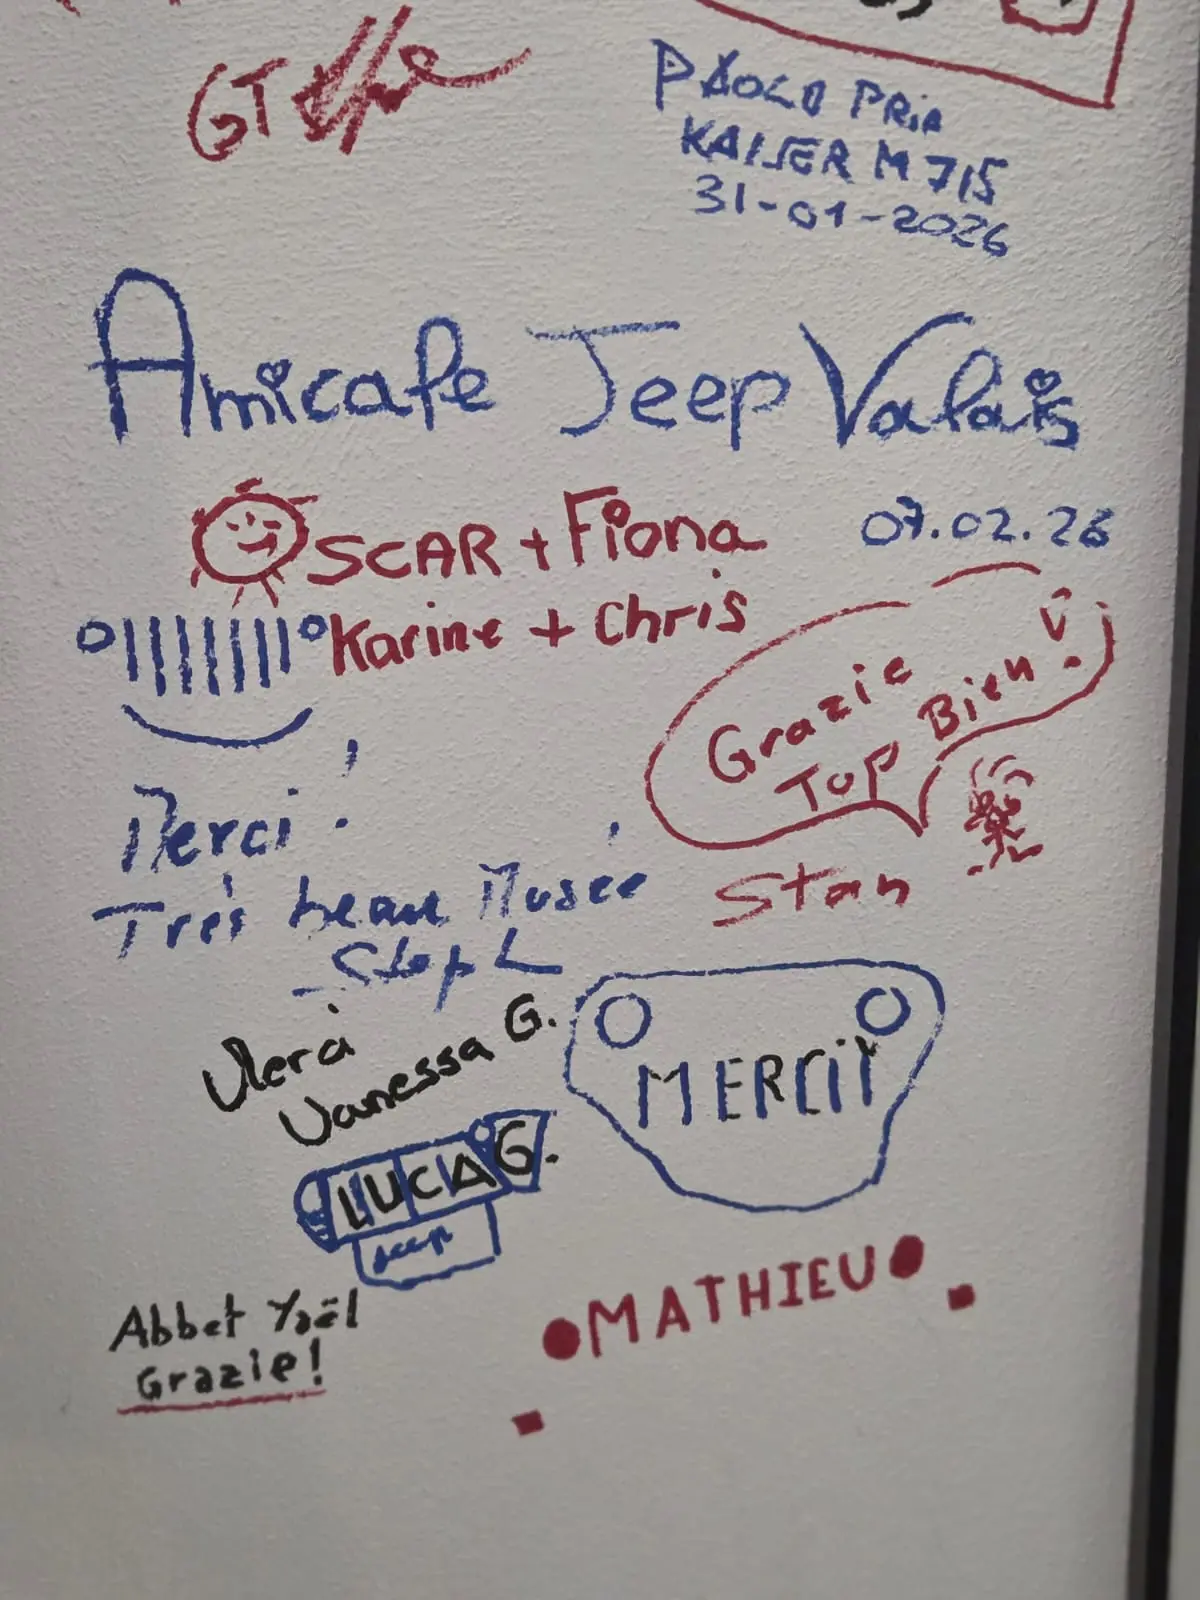 GT
PAOLO PRIA
KAISER M 715
31-01-2026
Amicale Jeep Valais
07.02.26
OSCAR + Fiona
Karine + Chris
Grazie
Top Bien !
Stan
Merci !
Très beau Musée
Steph L
Merci
Vanessa G.
MERCIIY
LUCA G.
Jeep
MATHIEU
Abbet Yaël
Grazie!